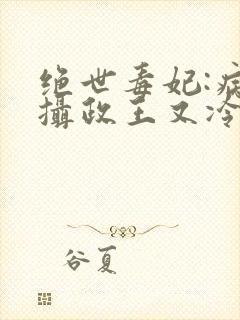 绝世毒妃:病
攝政王又冷
谷夏